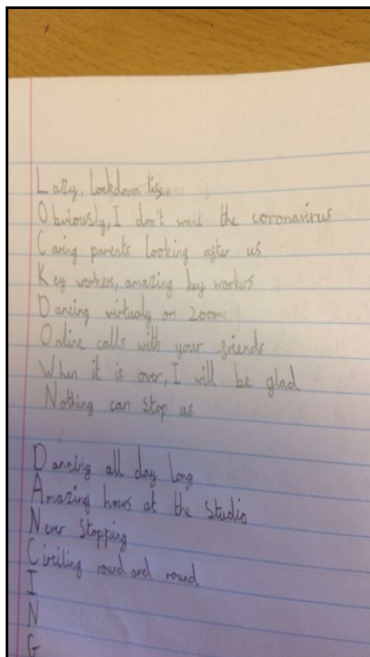 Lazy, lockdown life,
Obviously, I don't want the coronavirus
Caring parents looking after us
Key workers, amazing key workers
Dancing virtualy on Zoom
Online calls with your friends
When it is over, I will be glad
Nothing can stop us
Dancing all day long
Amazing hours at the Studio
Never Stopping
Circiling round and round
I
N
G